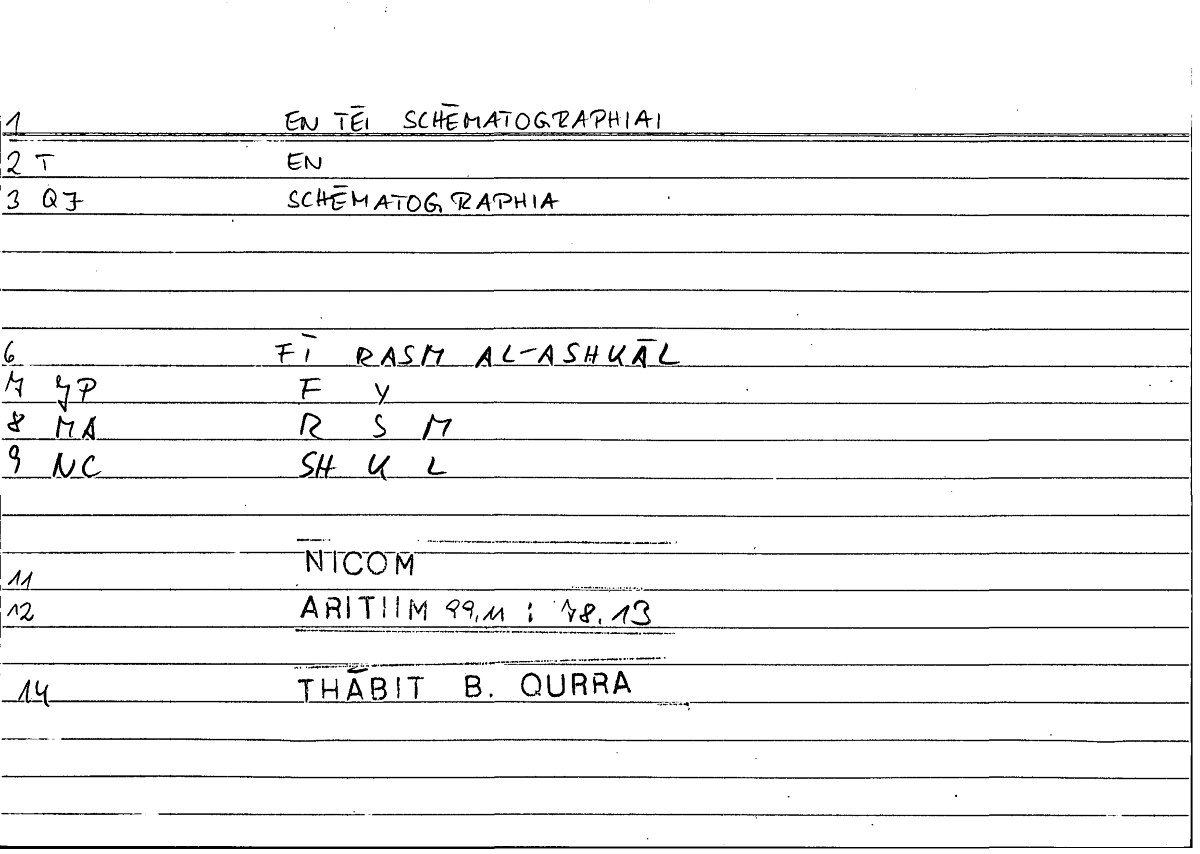 1 EN TĒI SCHĒMATOGRAPHIAI
2 T EN
3 QJ SCHĒMATOGRAPHIA
6 FĪ RASM AL-ASHKĀL
7 JP F Y
8 MA R S M
9 NC SH K L
11 NICOM
12 ARITHM 99,11 : 78.13
14 THĀBIT B. QURRA